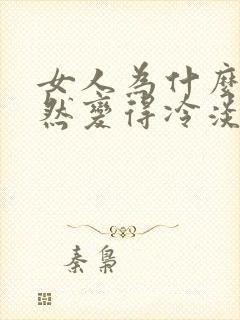 女人為什麼
然變得冷淡
秦梟